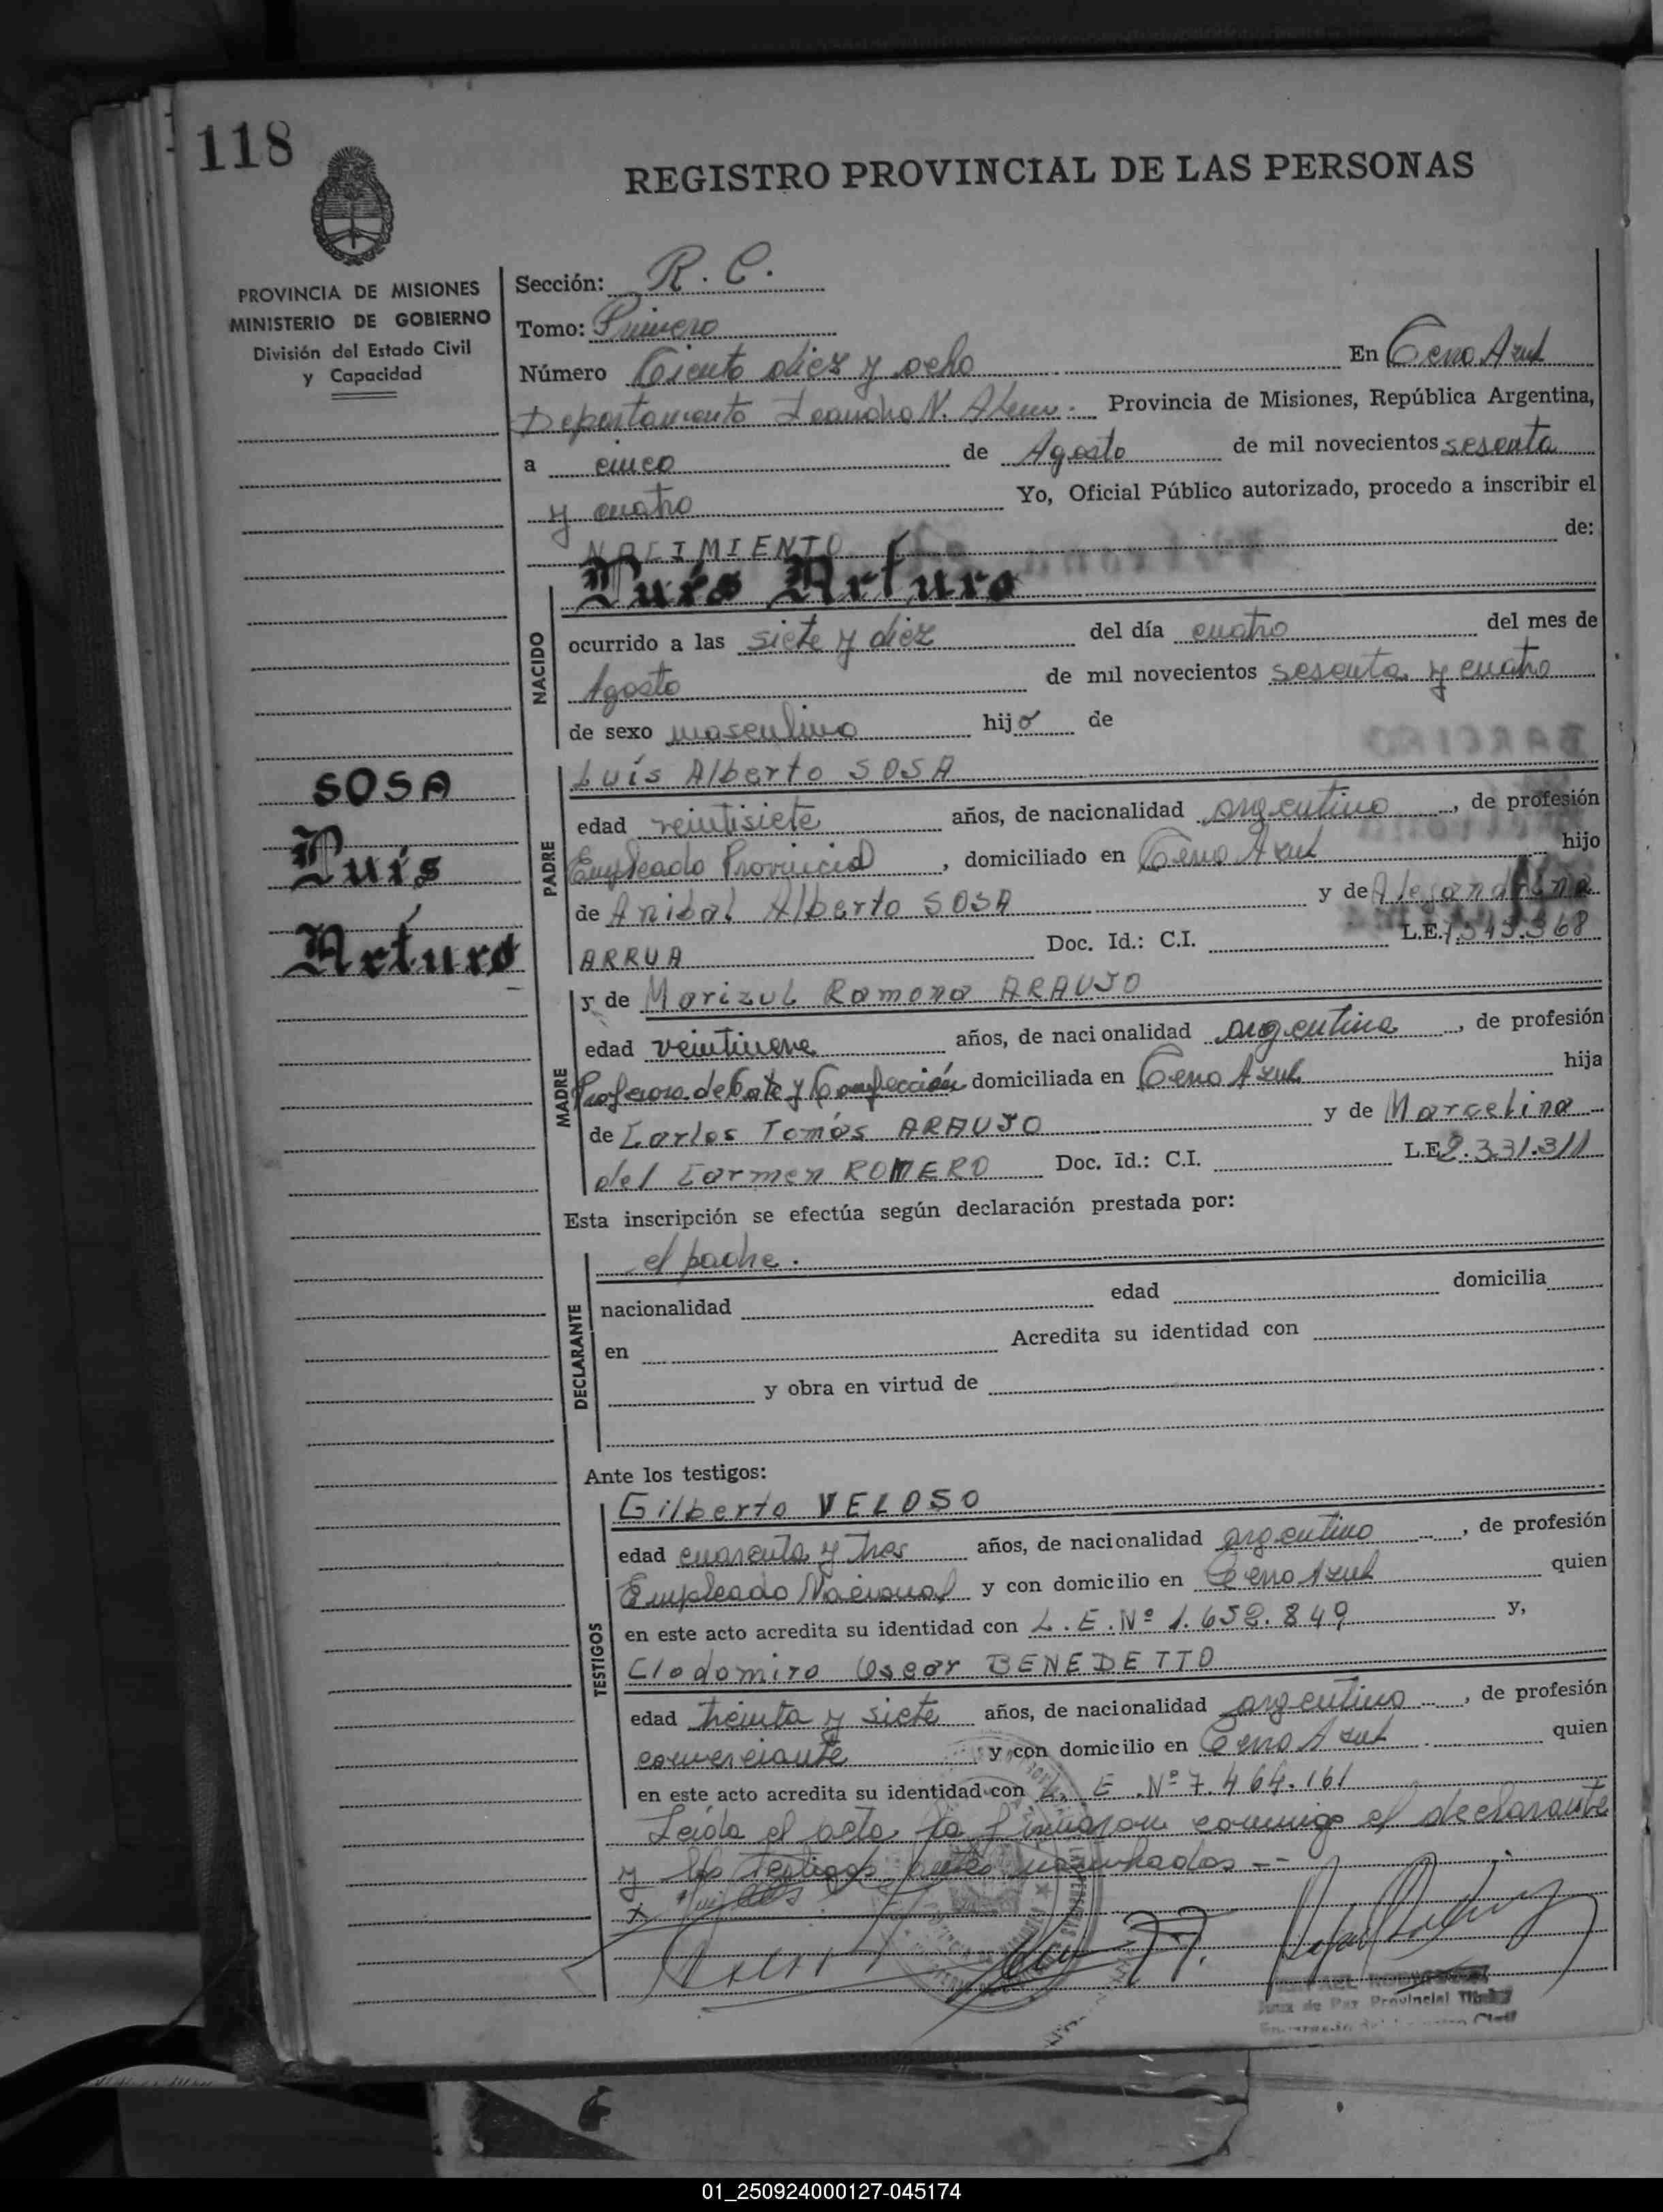 118
REGISTRO PROVINCIAL DE LAS PERSONAS
PROVINCIA DE MISIONES
MINISTERIO DE GOBIERNO
División del Estado Civil
y Capacidad
Sección: R. C.
Tomo: Primero
Número Ciento diez y ocho En Cerro Azul
Departamento Leandro N. Alem. Provincia de Misiones, República Argentina,
a cinco de Agosto de mil novecientos sesenta
y cuatro Yo, Oficial Público autorizado, procedo a inscribir el
NACIMIENTO de:
NACIDO
Luís Arturo
ocurrido a las siete y diez del día cuatro del mes de
Agosto de mil novecientos sesenta y cuatro
de sexo masculino hijo de
SOSA
Luís
Arturo
PADRE
Luís Alberto SOSA
edad veintisiete años, de nacionalidad argentino, de profesión
Empleado Provincial, domiciliado en Cerro Azul hijo
de Anibal Alberto SOSA y de Alejandrina
ARRUA Doc. Id.: C.I. L.E.
MADRE
y de Marizul Ramona ARAUJO
edad veintinueve años, de nacionalidad argentina, de profesión
Profesora de Corte y Confección domiciliada en Cerro Azul hija
de Carlos Tomás ARAUJO y de Marcelina
del Carmen ROMERO Doc. Id.: C.I. L.E. 2.331.311
Esta inscripción se efectúa según declaración prestada por:
DECLARANTE
el padre.
nacionalidad edad domicilia
en Acredita su identidad con
y obra en virtud de
Ante los testigos:
TESTIGOS
Gilberto VELOSO
edad cuarenta y tres años, de nacionalidad argentino, de profesión
Empleado Nacional y con domicilio en Cerro Azul quien
en este acto acredita su identidad con L.E.Nº 1.652.849 y,
Clodomiro Oscar BENEDETTO
edad treinta y siete años, de nacionalidad argentino, de profesión
comerciante y con domicilio en Cerro Azul quien
en este acto acredita su identidad con L. E. Nº 7.464.161
Leída el acta la firmaron conmigo el declarante
y los testigos antes nombrados --
Juez de Paz Provincial
01_250924000127-045174